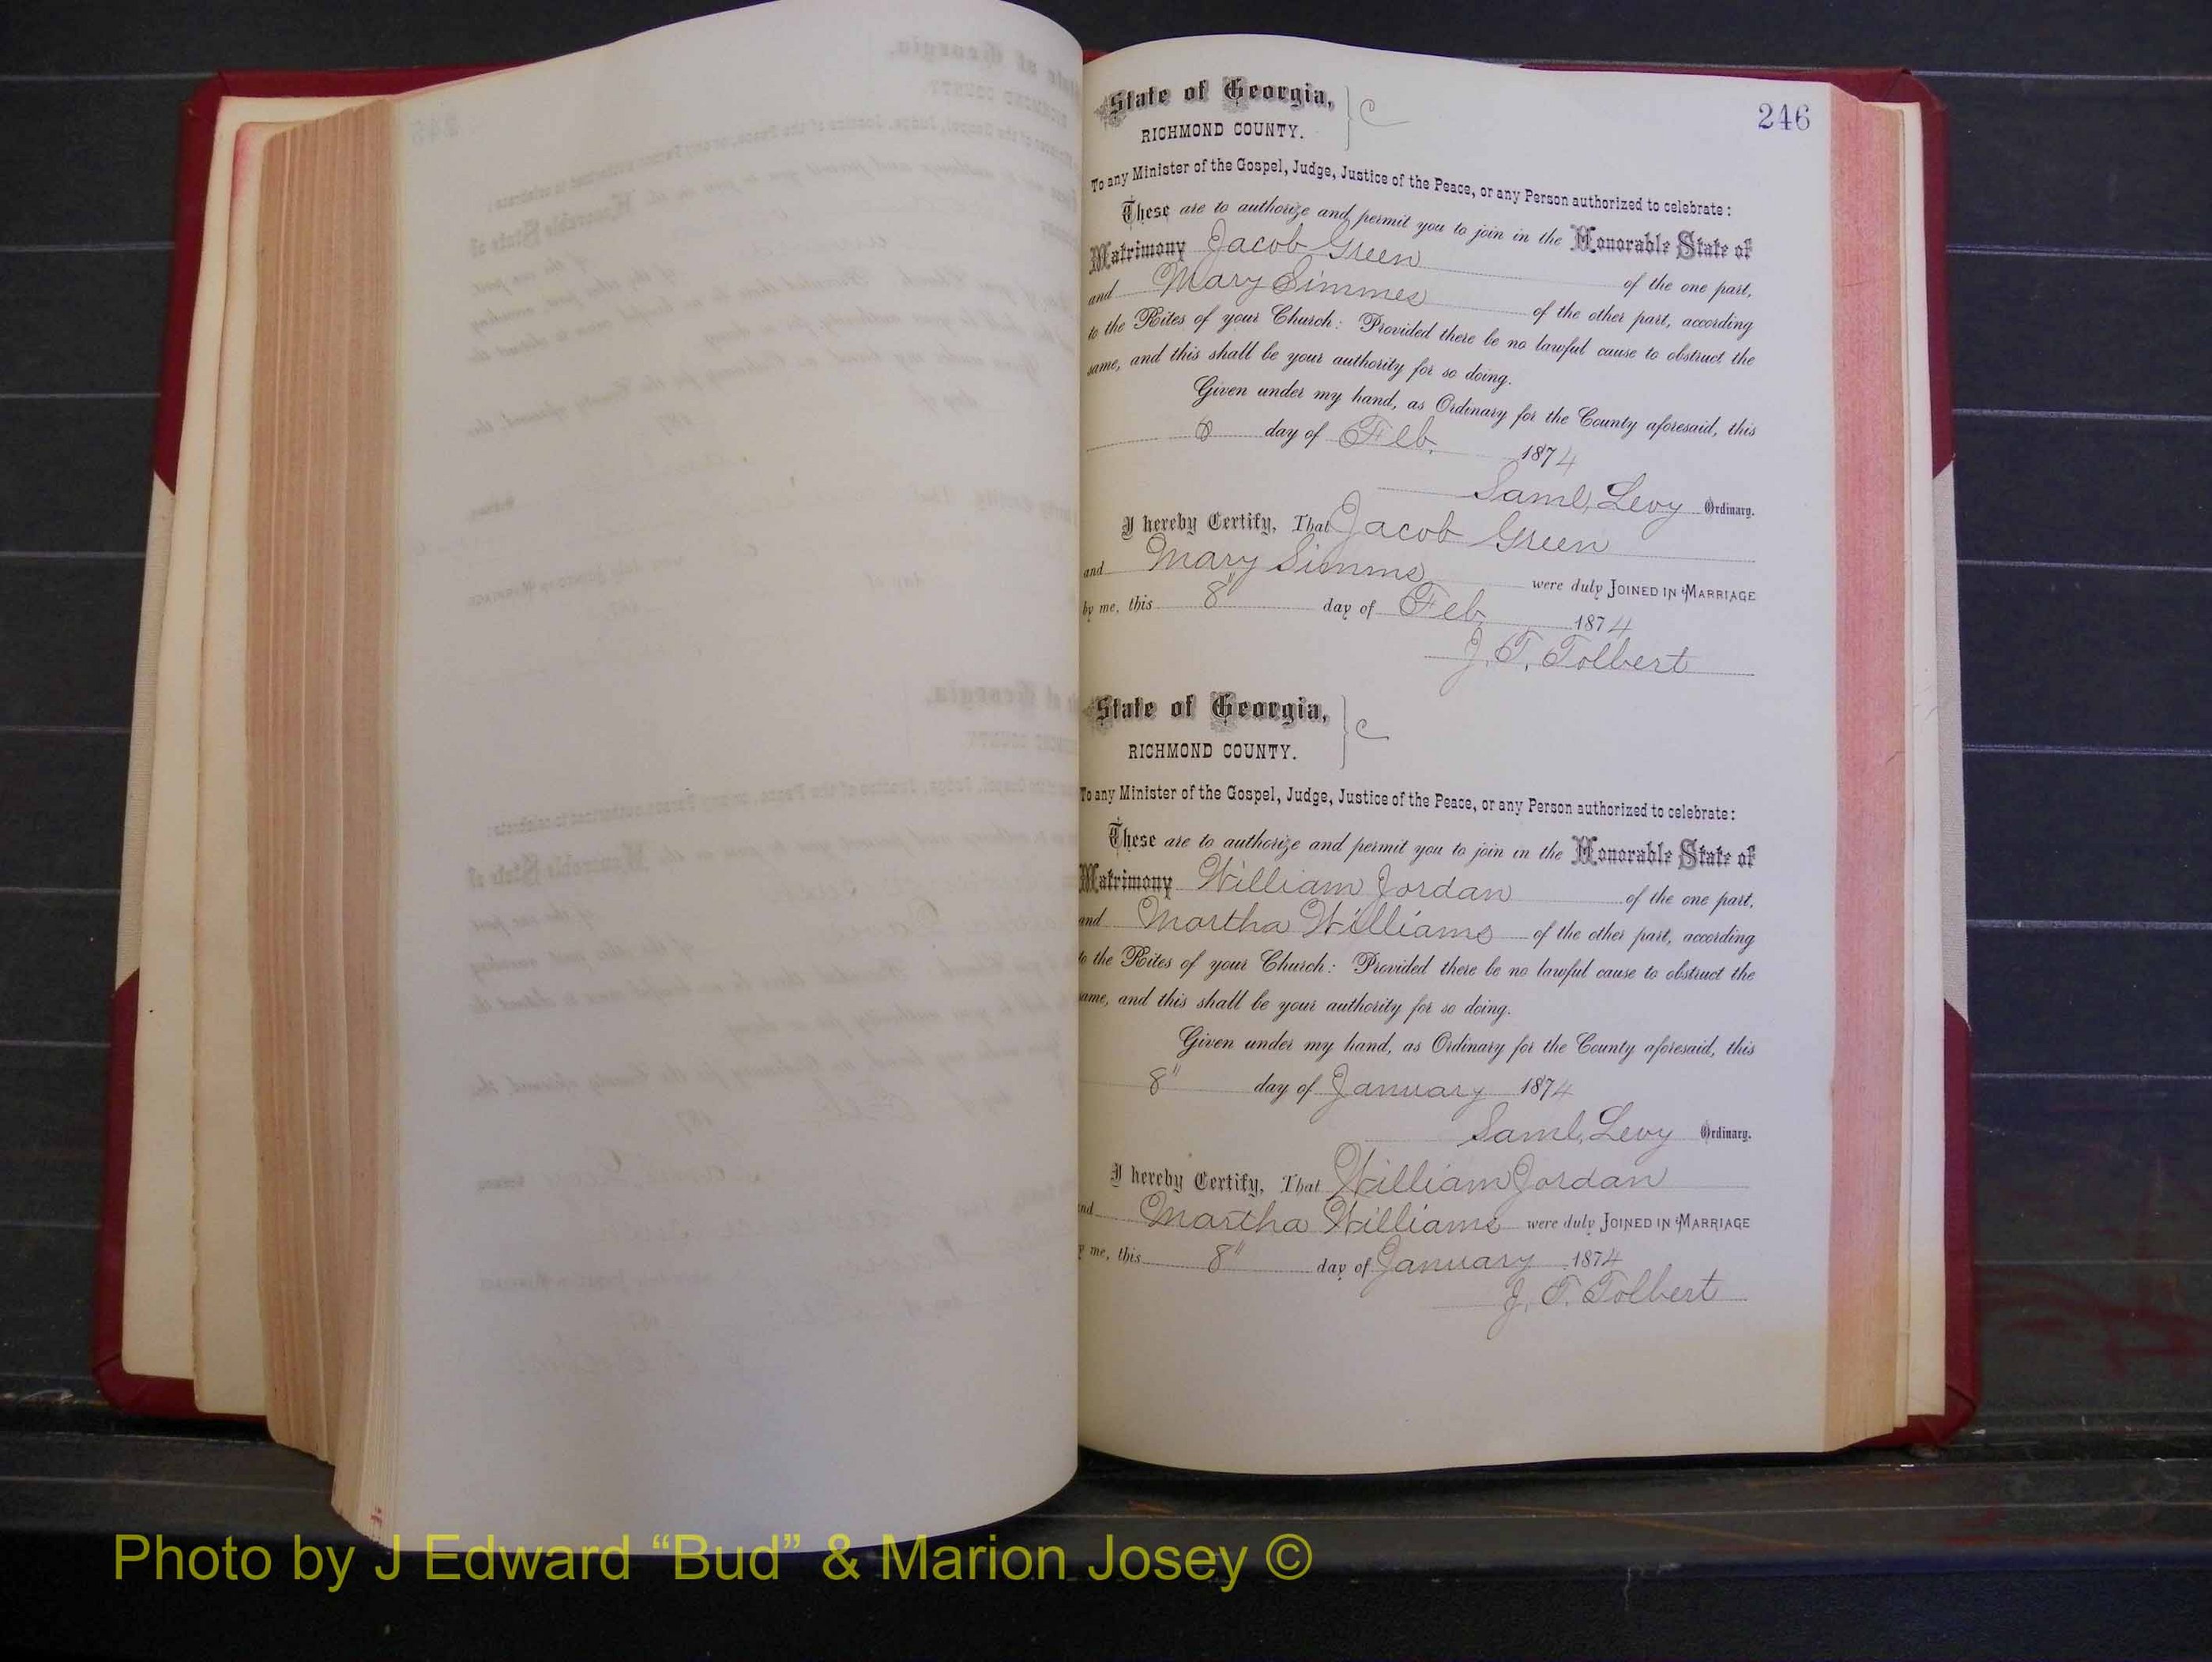 246
State of Georgia, } C
RICHMOND COUNTY.
To any Minister of the Gospel, Judge, Justice of the Peace, or any Person authorized to celebrate:
These are to authorize and permit you to join in the Honorable State of
Matrimony Jacob Green of the one part,
and Mary Simmes of the other part, according
to the Rites of your Church: Provided there be no lawful cause to obstruct the
same, and this shall be your authority for so doing.
Given under my hand, as Ordinary for the County aforesaid, this
day of Feb. 1874
Saml. Levy Ordinary.
I hereby Certify, That Jacob Green
and Mary Simms were duly JOINED IN MARRIAGE
by me, this 8" day of Feb. 1874
J. T. Tolbert
State of Georgia, } C
RICHMOND COUNTY.
To any Minister of the Gospel, Judge, Justice of the Peace, or any Person authorized to celebrate:
These are to authorize and permit you to join in the Honorable State of
Matrimony William Jordan of the one part,
and Martha Williams of the other part, according
to the Rites of your Church: Provided there be no lawful cause to obstruct the
same, and this shall be your authority for so doing.
Given under my hand, as Ordinary for the County aforesaid, this
8" day of January 1874
Saml. Levy Ordinary.
I hereby Certify, That William Jordan
and Martha Williams were duly JOINED IN MARRIAGE
by me, this 8" day of January 1874
J. T. Tolbert
Photo by J Edward “Bud” & Marion Josey ©